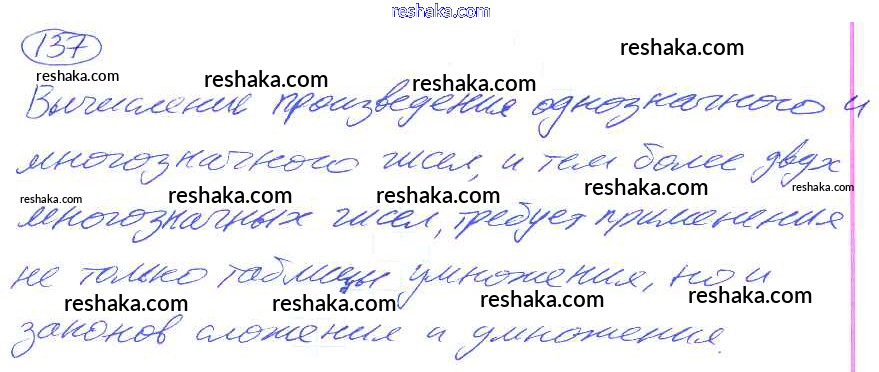 reshaka.com
137
reshaka.com
reshaka.com reshaka.com reshaka.com
Вычисление произведения однозначного и
многозначного чисел, и тем более двух
reshaka.com reshaka.com reshaka.com reshaka.com reshaka.com
многозначных чисел, требует применения
не только таблицы умножения, но и
reshaka.com reshaka.com reshaka.com reshaka.com
законов сложения и умножения.